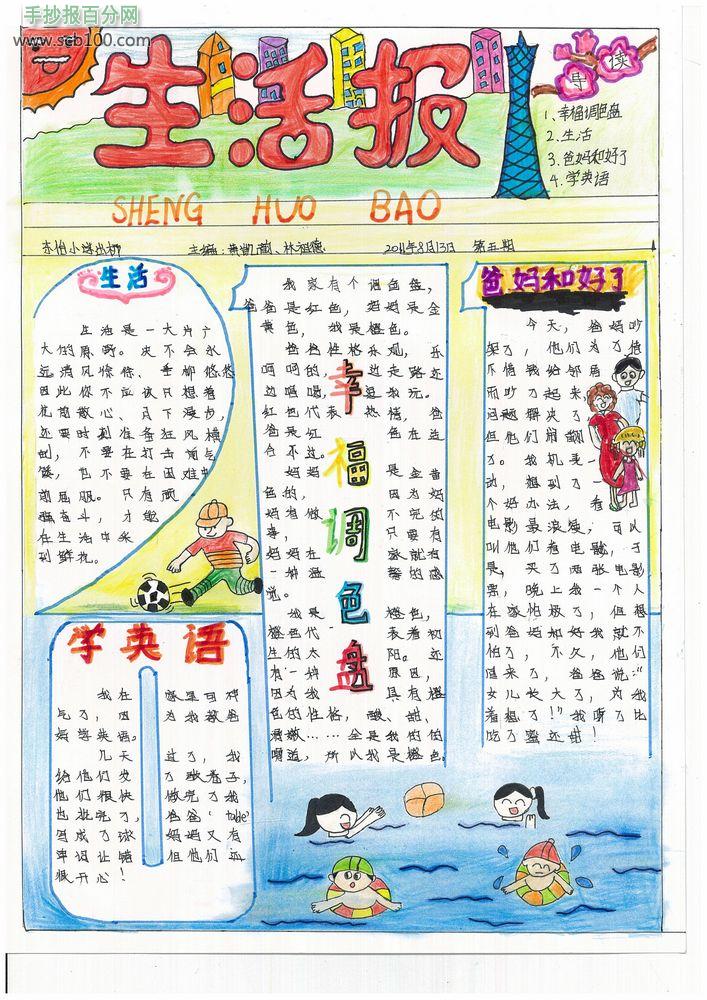 手抄报百分网
www.scb100.com
生活报
导读
1、幸福调色盘
2、生活
3、爸妈和好了
4、学英语
SHENG HUO BAO
2011年8月13日 第五期
生活
生活是一大片广
大的原野。决不会永
远清风徐徐、垂柳悠悠
因此你不应该只想着
花前散心、月下漫步,
还要时刻准备狂风横
剑,不要在打击面后
馁,也不要在困难中
前屈服。只有顽
强奋斗,才能
在生活中采
到鲜花。
幸福调色盘
我家有个调色盘,
爸爸是红色,妈妈是金
黄色,我是橙色。
爸爸性格乐观,乐
呵呵的,边走路还
边唱唱,逗我玩。
红色代表热情,爸
爸是红色在适
合不过。
妈妈是金黄
色的,因为妈
妈有做不完的
事,只要有
妈妈在家就有
一种温馨的感
觉。
我是橙色,
橙色代表着初
生的太阳。还
有一种原因,
因为我具有橙
色的性格,酸、甜、
清嫩……全是我的的
嘴道,所以我是橙色。
爸妈和好了
今天,爸妈吵
架了,他们为了借
不借钱给邻居
而吵了起来,
问题解决了
但他们闹翻
了。我机灵一
动,想到了一
个好办法,看
电影最浪漫,可以
叫他们看电影,于
是,买了两张电影
票,晚上我一个人
在家怕极了,但想
到爸妈和好我就不
怕了,不久,他们
回来了,爸爸说:“
女儿长大了,为我
着想了!”我听了比
吃了蜜还甜!
学英语
我在家里可神
气了,因为我教爸
妈学英语。
几天过了,我
给他们发了试卷子,
他们很快做完了我
也批完了,爸爸‘take’
写成了 妈妈又有
单词让错但他们还
很开心!